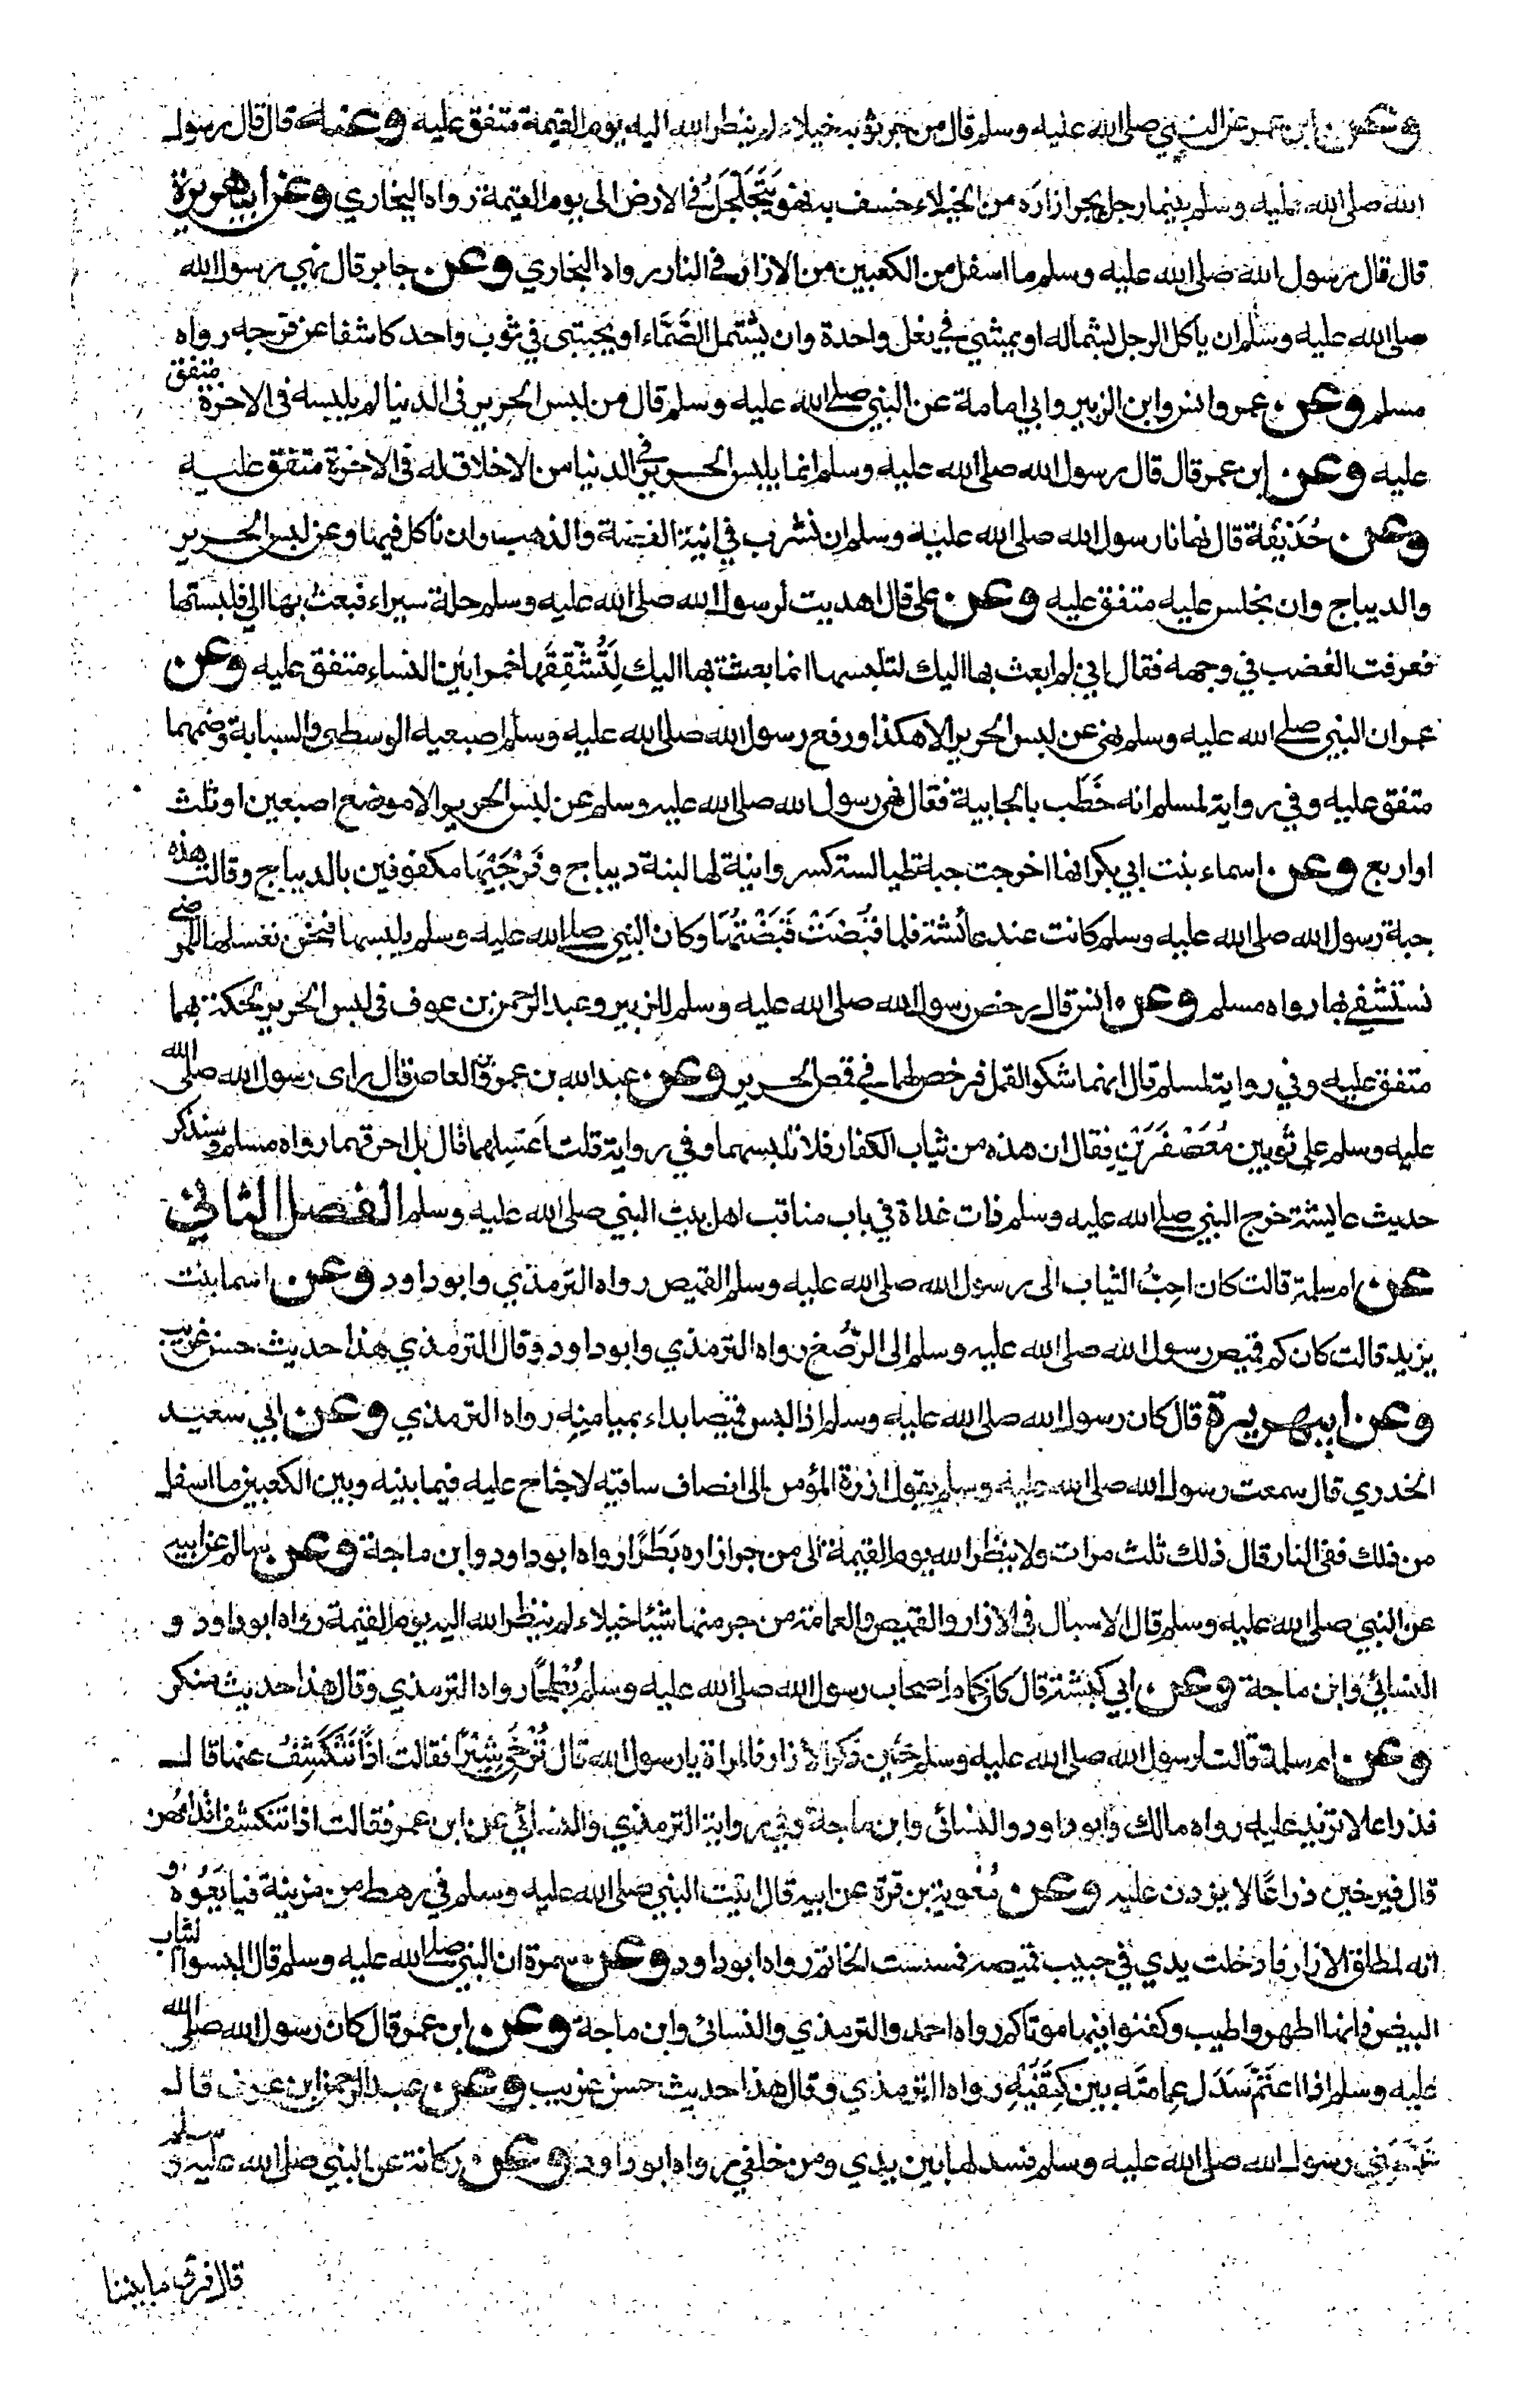 وعن ابن عمر عن النبي صلى الله عليه وسلم قال من جر ثوبه خيلاء لم ينظر الله اليه يوم القيمة متفق عليه وعنه قال قال رسول
الله صلى الله عليه وسلم بينما رجل يجر ازاره من الخيلاء خسف به فهو يَتَجَلْجَلُ في الارض الى يوم القيمة رواه البخاري وعن ابي هريرة
قال قال رسول الله صلى الله عليه وسلم ما اسفل من الكعبين من الازار في النار رواه البخاري وعن جابر قال نهى رسول الله
صلى الله عليه وسلم ان ياكل الرجل بشماله او يمشي في نعل واحدة وان يشتمل الصَّمَّاء او يحتبى في ثوب واحد كاشفا عن فرجه رواه
مسلم وعن عمر وانس وابن الزبير وابي امامة عن النبي صلى الله عليه وسلم قال من لبس الحرير فى الدنيا لم يلبسه فى الاخرة متفق
عليه وعن ابن عمر قال قال رسول الله صلى الله عليه وسلم انما يلبس الحرير في الدنيا من لاخلاق له فى الاخرة متفق عليه
وعن حُذَيْفَة قال نهانا رسول الله صلى الله عليه وسلم ان نشرب في انية الفضة والذهب وان ناكل فيها وعن لبس الحرير
والديباج وان نجلس عليه متفق عليه وعن علي قال اهديت لرسول الله صلى الله عليه وسلم حلة سيراء فبعث بها الي فلبستها
فعرفت الغضب في وجهه فقال اني لم ابعث بها اليك لتلبسها انما بعثت بها اليك لِتُشَقِّقَها خمرا بين النساء متفق عليه وعن
عمر ان النبي صلى الله عليه وسلم نهى عن لبس الحرير الا هكذا ورفع رسول الله صلى الله عليه وسلم اصبعيه الوسطى والسبابة وضمهما
متفق عليه وفي رواية لمسلم انه خَطَب بالجابية فقال نهى رسول الله صلى الله عليه وسلم عن لبس الحرير الا موضع اصبعين او ثلث
او اربع وعن اسماء بنت ابي بكر انها اخرجت جبة طيالسة كسروانية لها لبنة ديباج وفَرْجَيْهَا مكفوفين بالديباج وقالت هذه
جبة رسول الله صلى الله عليه وسلم كانت عند عائشة فلما قُبِضَتْ قَبَضْتُهَا وكان النبي صلى الله عليه وسلم يلبسها فنحن نغسلها للمرضى
نستشفي بها رواه مسلم وعن انس قال رخص رسول الله صلى الله عليه وسلم للزبير وعبد الرحمن بن عوف فى لبس الحرير لحكة بهما
متفق عليه وفي رواية لمسلم قال انهما شكوا القمل فرخص لهما في قمص الحرير وعن عبد الله بن عمرو بن العاص قال راى رسول الله صلى الله
عليه وسلم علي ثوبين مُعَصْفَرَيْنِ فقال ان هذه من ثياب الكفار فلا تلبسهما وفي رواية قلت اغسلهما قال بل احرقهما رواه مسلم وسنذكر
حديث عايشة خرج النبي صلى الله عليه وسلم ذات غداة في باب مناقب اهل بيت النبي صلى الله عليه وسلم الفصل الثاني
عن ام سلمة قالت كان احبُّ الثياب الى رسول الله صلى الله عليه وسلم القميص رواه الترمذي وابوداود وعن اسما بنت
يزيد قالت كان كم قميص رسول الله صلى الله عليه وسلم الى الرُّصْغ رواه الترمذي وابوداود وقال الترمذي هذا حديث حسن غريب
وعن ابيهريرة قال كان رسول الله صلى الله عليه وسلم اذا لبس قميصا بداء بميامنِهِ رواه الترمذي وعن ابي سعيد
الخدري قال سمعت رسول الله صلى الله عليه وسلم يقول ازرة المؤمن الى انصاف ساقيه لا جناح عليه فيما بينه وبين الكعبين ما اسفل
من ذلك ففى النار قال ذلك ثلث مرات ولا ينظر الله يوم القيمة الى من جر ازاره بَطَرًا رواه ابوداود وابن ماجة وعن سالم عن ابيه
عن النبي صلى الله عليه وسلم قال الاسبال فى الازار والقميص والعمامة من جر منها شيئا خيلاء لم ينظر الله اليه يوم القيمة رواه ابوداود و
النسائي وابن ماجة وعن ابي كبشة قال كان كمام اصحاب رسول الله صلى الله عليه وسلم بُطْحًا رواه الترمذي وقال هذا حديث منكر
وعن ام سلمة قالت لرسول الله صلى الله عليه وسلم حين ذكر الازار فالمراة يا رسول الله قال تُرْخِي شِبْرًا فقالت اذًا تَنْكَشِفُ عنها قال
فذراعا لا تزيد عليه رواه مالك وابوداود والنسائى وابن ماجة وفي رواية الترمذي والنسائي عن ابن عمر فقالت اذا تنكشف اقدامهن
قال فيرخين ذراعًا لا يزدن عليه وعن مُعوية بن قرة عن ابيه قال اتيت النبي صلى الله عليه وسلم في رهط من مزينة فبايَعُوهُ و
انه لمطلق الازار فادخلت يدي في جيب قميصه فمسست الخاتم رواه ابوداود وعن سمرة ان النبي صلى الله عليه وسلم قال البسوا الثياب
البيض فانها اطهر واطيب وكفنوا فيها موتاكم رواه احمد والترمذي والنسائى وابن ماجة وعن ابن عمر قال كان رسول الله صلى الله
عليه وسلم اذا اعتَمَّ سَدَل عِمامتَه بين كَتِفَيْهِ رواه الترمذي وقال هذا حديث حسن غريب وعن عبد الرحمن ابن عوف قال
عَمَّمَنِي رسول الله صلى الله عليه وسلم فسدلها بين يدي ومن خلفي رواه ابوداود وعن ركانة عن النبي صلى الله عليه وسلم
قال فرق ما بيننا